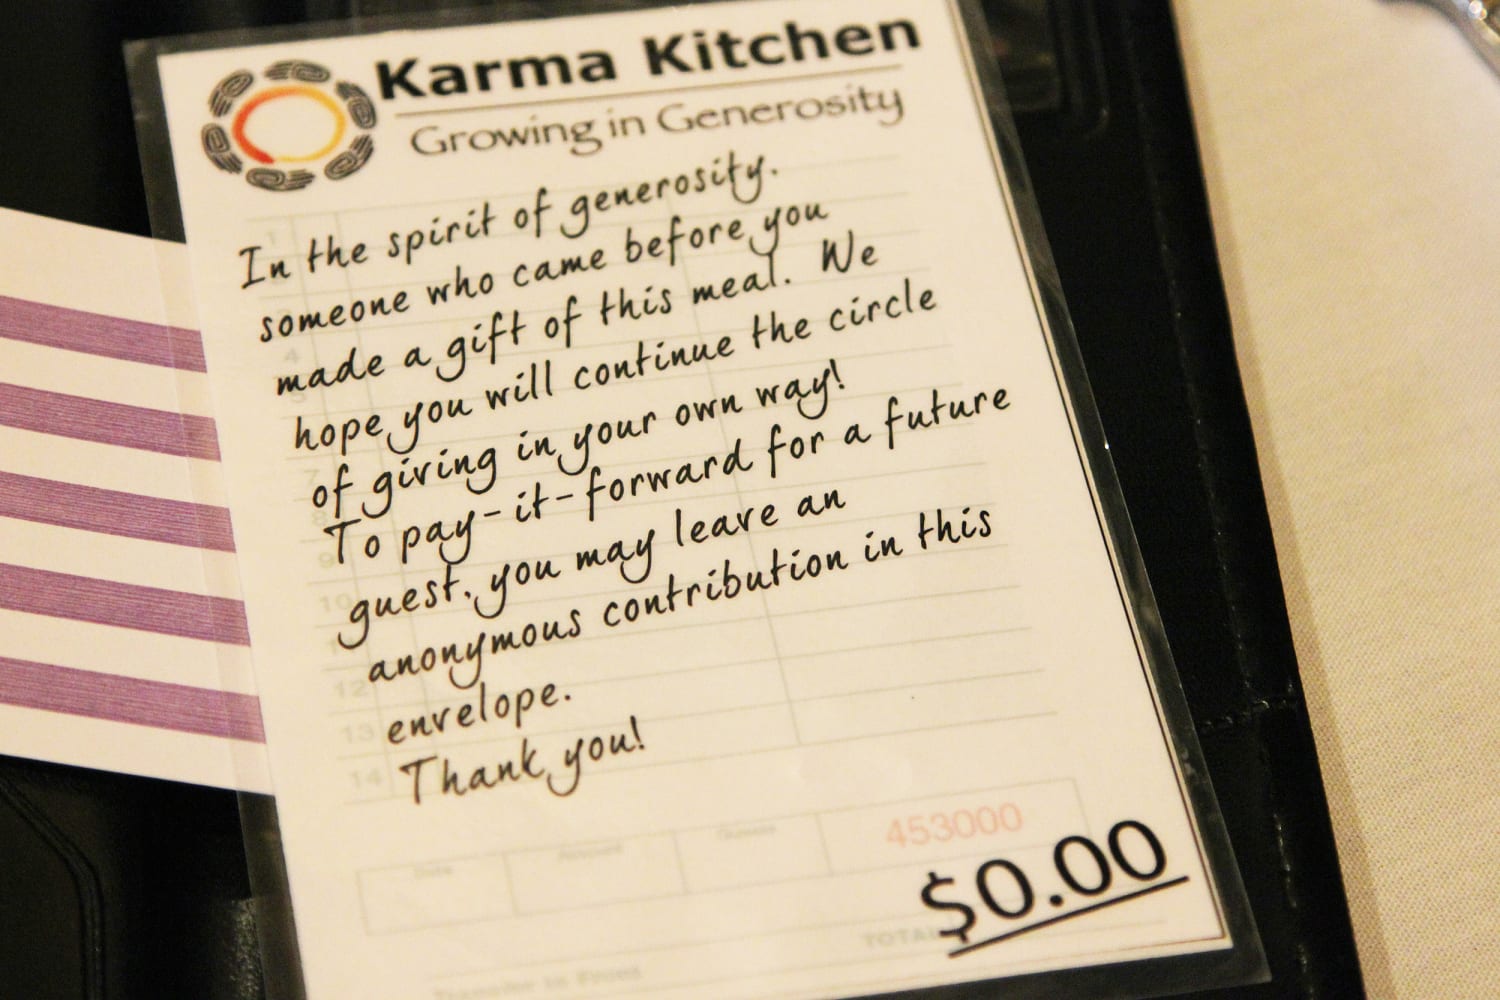 Karma Kitchen
Growing in Generosity
In the spirit of generosity.
someone who came before you
made a gift of this meal. We
hope you will continue the circle
of giving in your own way!
To pay-it-forward for a future
guest. you may leave an
anonymous contribution in this
envelope.
Thank you!
1
4
7
8
9
10
12
13
14
Date
Amount
Guests
453000
$0.00
TOTAL
Transfer to Front